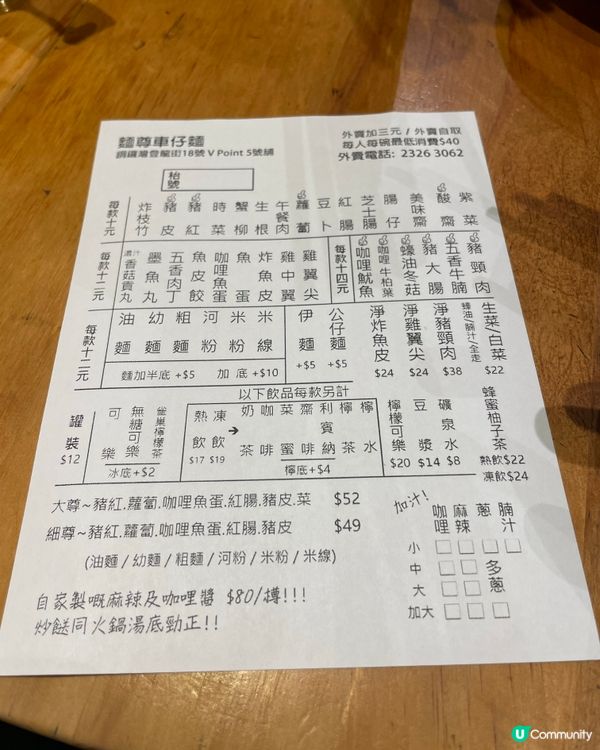 麵尊車仔麵
銅鑼灣登龍街18號 V Point 5號舖
外賣加三元 / 外賣自取
每人每碗最低消費$40
外賣電話: 2326 3062
枱號
每款十元
炸枝竹
豬皮
豬紅
時菜
蟹柳
生根
午餐肉
蘿蔔
豆卜
紅腸
芝士腸
腸仔
美味齋
酸齋
紫菜
每款十二元
濃汁香菇貢丸
墨魚丸
五香肉丁
魚皮餃
咖哩魚蛋
魚蛋
炸魚皮
雞中翼
雞翼尖
每款十四元
咖哩魷魚
咖哩牛柏葉
蠔油冬菇
豬大腸
五香牛腩
豬頸肉
每款十二元
油麵
幼麵
粗麵
河粉
米粉
米線
麵加半底 +$5 加底 +$10
伊麵 +$5
公仔麵 +$5
淨炸魚皮 $24
淨雞翼尖 $24
淨豬頸肉 $38
生菜/白菜 蠔油/腩汁/全走 $22
以下飲品每款另計
罐裝 $12
可樂
無糖可樂
雀巢檸檬茶
冰底 +$2
熱飲 $17
凍飲 $19
奶茶
咖啡
菜蜜
齋啡
利賓納
檸茶
檸水
檸底+$4
檸檬可樂 $20
豆漿 $14
礦泉水 $8
蜂蜜柚子茶
熱飲$22
凍飲$24
大尊~豬紅.蘿蔔.咖哩魚蛋.紅腸.豬皮.菜 $52
細尊~豬紅.蘿蔔.咖哩魚蛋.紅腸.豬皮 $49
(油麵 / 幼麵 / 粗麵 / 河粉 / 米粉 / 米線)
加汁!
咖哩 麻辣 蔥 腩汁
小
中
大
加大
多蔥
自家製嘅麻辣及咖哩醬 $80/樽!!!
炒餸同火鍋湯底勁正!!
U Community